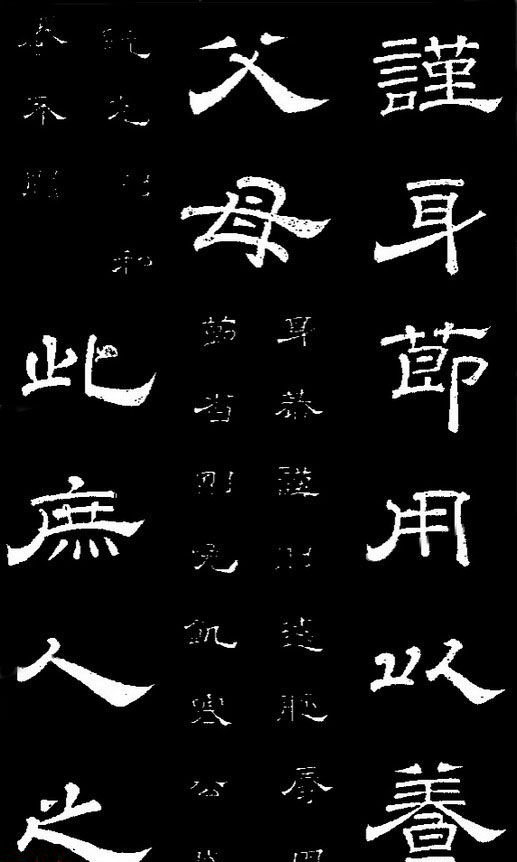 謹身節用以養
父母
身恭謹則遠恥辱用
節省則免飢寒公
既充則私
養不闕
此庶人之